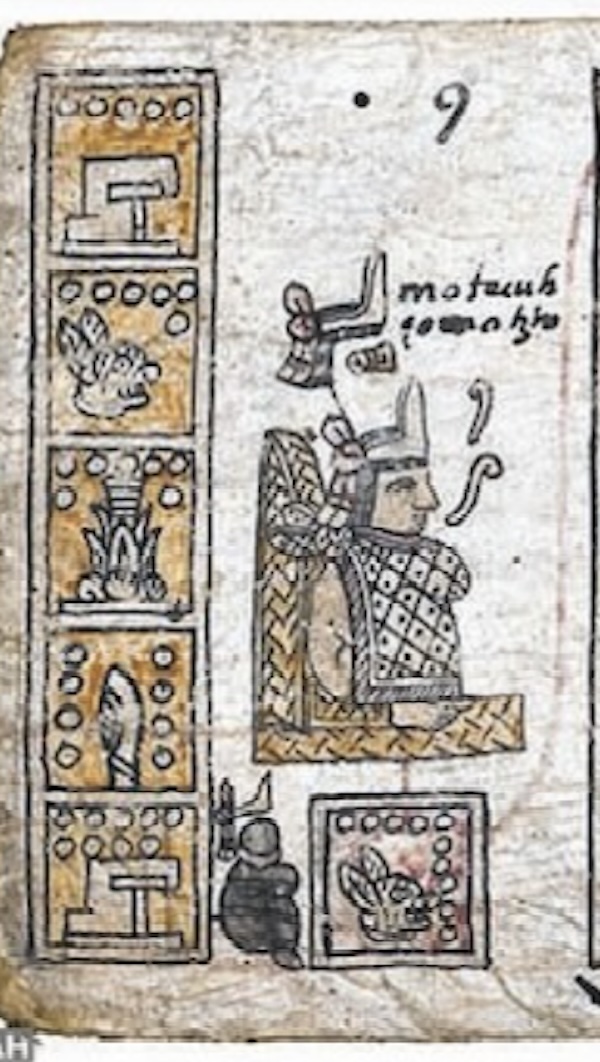 9
motecuh
çomatzin
AH